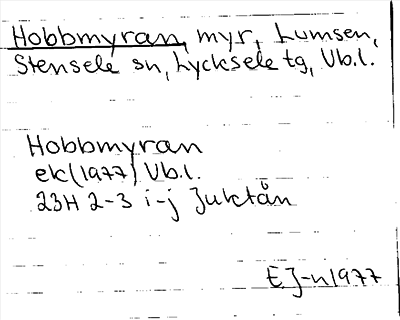 Hobbmyran, myr, Lumsen,
Stensele sn, Lycksele tg, Vb.l.
Hobbmyran
ek(1977) Vb.l.
23H 2-3 i-j Juktån
EJ-n1977